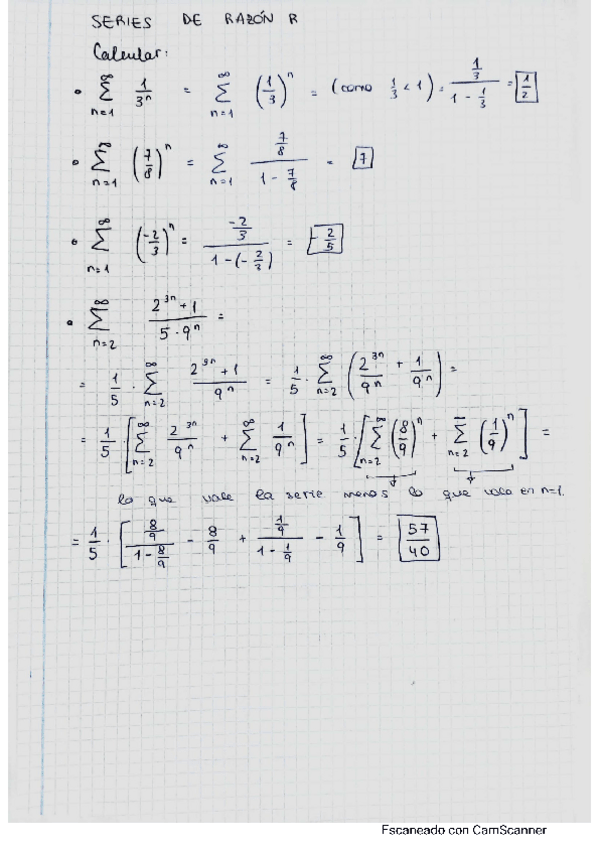 SERIES DE RAZÓN R
Calcular:
• ∑_{n=1}^{∞} 1/3^n = ∑_{n=1}^{∞} (1/3)^n = (como 1/3 < 1) = (1/3)/(1 - 1/3) = 1/2
• ∑_{n=1}^{∞} (7/8)^n = ∑_{n=1}^{∞} (7/8)/(1 - 7/8) = 7
• ∑_{n=1}^{∞} (-2/3)^n = (-2/3)/(1-(-2/3)) = -2/5
• ∑_{n=2}^{∞} (2^{3n}+1)/(5·9^n) =
= 1/5 · ∑_{n=2}^{∞} (2^{3n}+1)/9^n = 1/5 · ∑_{n=2}^{∞} (2^{3n}/9^n + 1/9^n) =
= 1/5 · [∑_{n=2}^{∞} 2^{3n}/9^n + ∑_{n=2}^{∞} 1/9^n] = 1/5 · [∑_{n=2}^{∞} (8/9)^n + ∑_{n=2} (1/9)^n] =
lo que vale la serie menos lo que vale en n=1.
= 1/5 · [(8/9)/(1-8/9) - 8/9 + (1/9)/(1-1/9) - 1/9] = 57/40
Escaneado con CamScanner